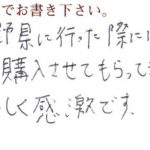 でお書き下さい。
野県に行った際には
購入させてもらって
しく感激です。